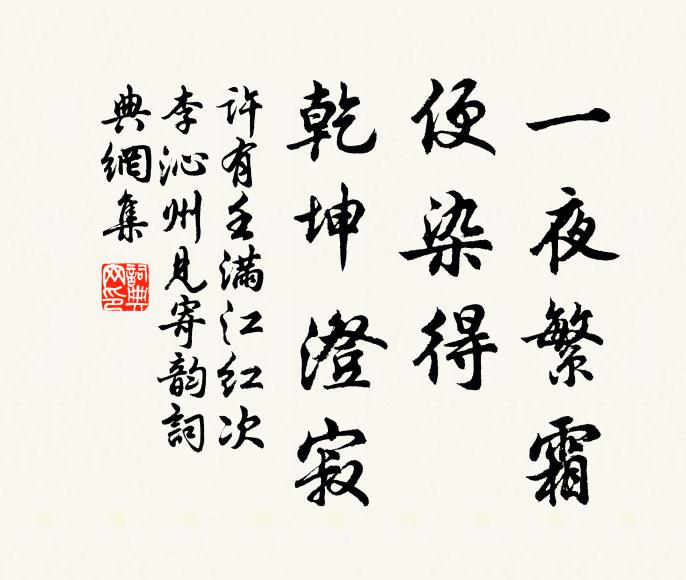 一夜繁霜
便染得
乾坤澄寂
許有壬滿江紅次
李沁州見寄韵詞
典網集
詞典
网印